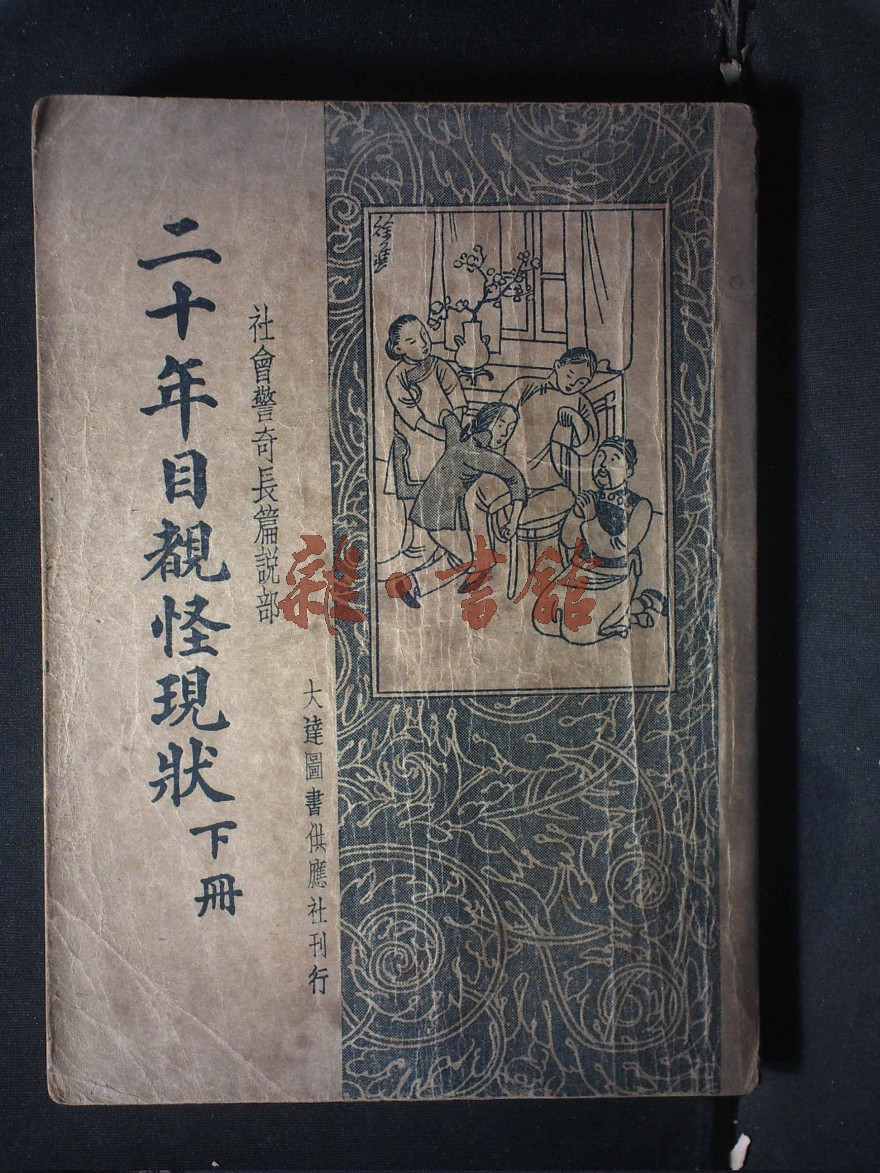 二十年目覩怪現狀 下冊
社會警奇長篇説部
大達圖書供應社刊行
雜·書館